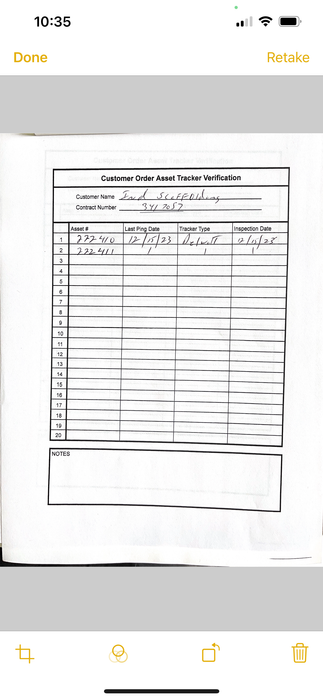 10:35
Done Retake
Customer Order Asset Tracker Verification
Customer Name Ind Scaffolding
Contract Number
Asset # Last Ping Date Tracker Type Inspection Date
1 222410 12/15/23 DeWalt
2 222411
3
4
5
6
7
8
9
10
11
12
13
14
15
16
17
18
19
20
NOTES